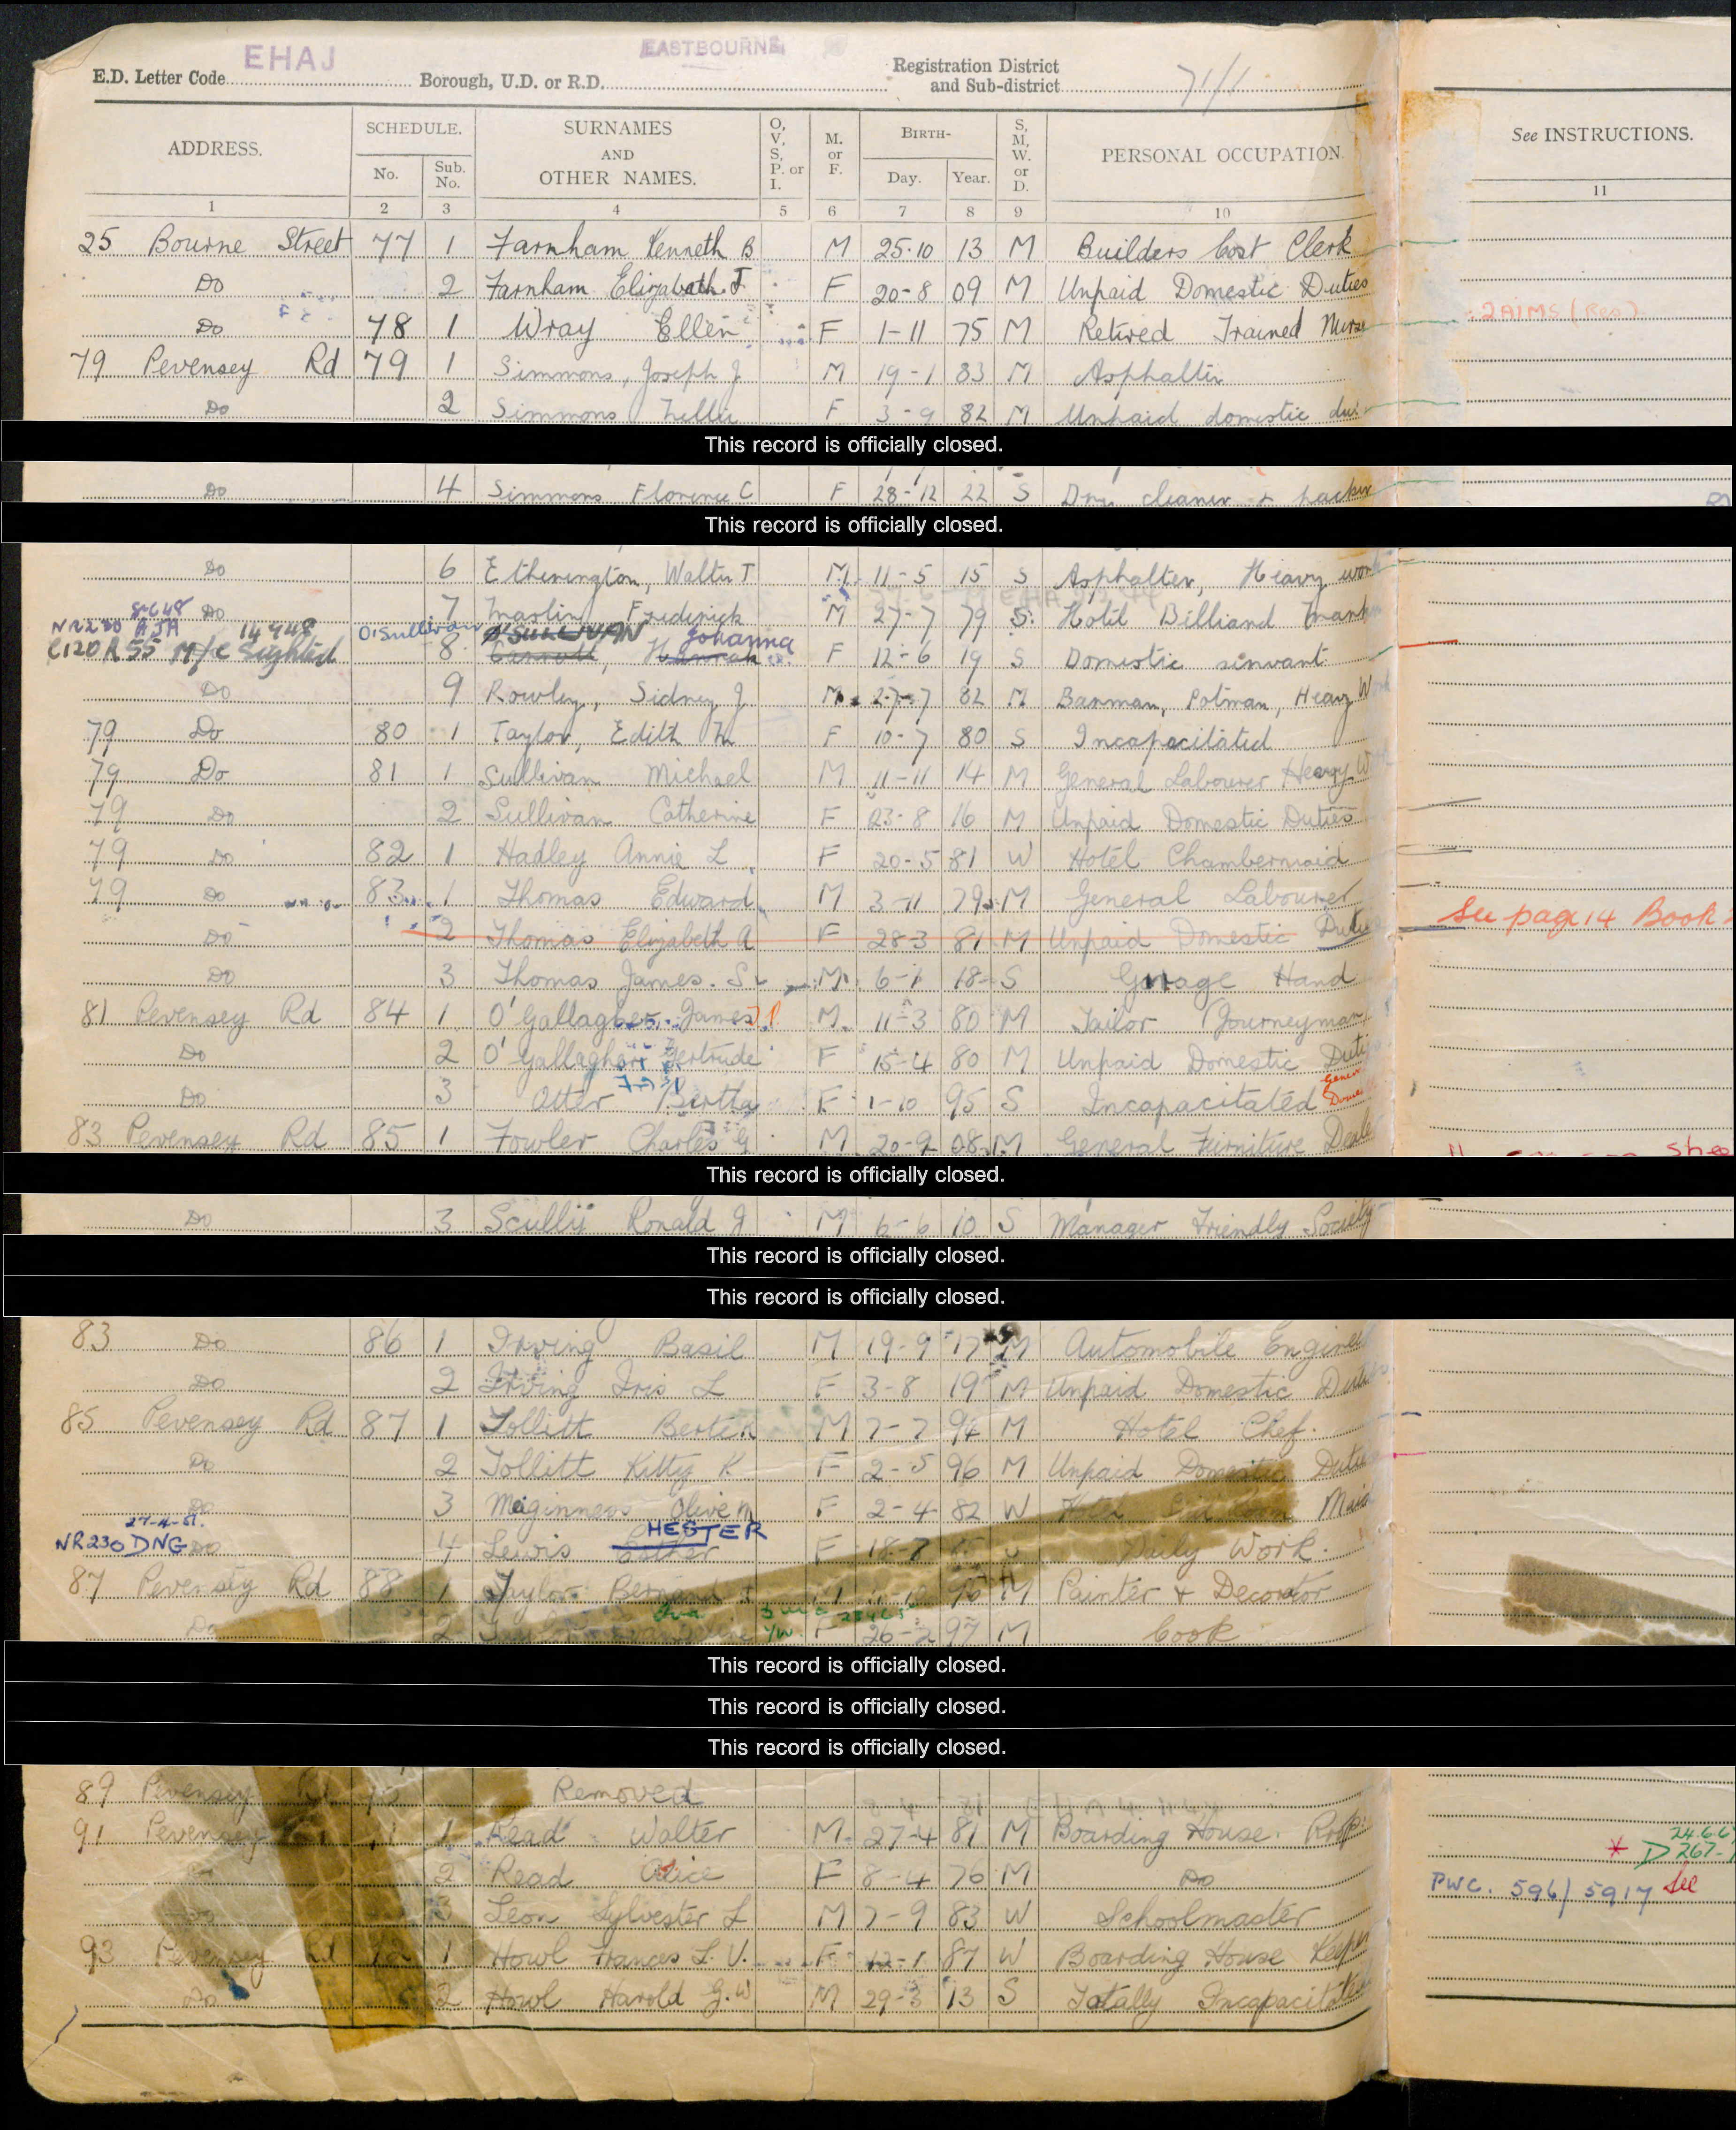 EHAJ EASTBOURNE
E.D. Letter Code Borough, U.D. or R.D. Registration District and Sub-district 71/1
ADDRESS. SCHEDULE. No. Sub. No. SURNAMES AND OTHER NAMES. O, V, S, P. or I. M. or F. BIRTH- Day. Year. S, M, W. or D. PERSONAL OCCUPATION. See INSTRUCTIONS.
1 2 3 4 5 6 7 8 9 10 11
25 Bourne Street 77 1 Farnham Kenneth B M 25-10 13 M Builders Cost Clerk
Do 2 Farnham Elizabeth J F 20-8 09 M Unpaid Domestic Duties
Do 78 1 Wray Ellen F 1-11 75 M Retired Trained Nurse
79 Pevensey Rd 79 1 Simmons, Joseph J M 19-1 83 M Asphalter
Do 2 Simmons F 3-9 82 M Unpaid domestic
This record is officially closed.
Do 4 Simmons Florence C F 28-12 22 S Dry cleaner + packer
This record is officially closed.
Do 6 Etherington, Walter T M 11-5 15 S Asphalter, Heavy work
Do 7 Maslin Frederick M 27-7 79 S Hotel Billiard
NR230 AJA 14948 O'Sullivan O'SULLIVAN Johanna
C120 R55 M/C Sighted 8 F 12-6 19 S Domestic servant
Do 9 Rowley, Sidney J. M 27-7 82 M Barman, Potman, Heavy Work
79 Do 80 1 Taylor, Edith M F 10-7 80 S Incapacitated
79 Do 81 1 Sullivan Michael M 11-11 14 M General Labourer Heavy W
79 Do 2 Sullivan Catherine F 23-8 16 M Unpaid Domestic Duties
79 Do 82 1 Hadley Annie L F 20-5 81 W Hotel Chambermaid
79 Do 83 1 Thomas Edward M 3-11 79 M General Labourer
See page 14 Book
Do 2 Thomas Elizabeth A F 28-3 81 M Unpaid Domestic Duties
Do 3 Thomas James. S M 6-1 18 S Garage Hand
81 Pevensey Rd 84 1 O'Gallagher James M 11-3 80 M Tailor (Journeyman)
Do 2 O'Gallagher Gertrude F 15-4 80 M Unpaid Domestic Duties
Do 3 Otter Bertha F 1-10 95 S Incapacitated
83 Pevensey Rd 85 1 Fowler Charles G M 20-9 08 M General Furniture Deale
This record is officially closed.
Do 3 Scully Ronald J M 6-6 10 S Manager Friendly Society
This record is officially closed.
This record is officially closed.
83 Do 86 1 Irving Basil M 19-9 17 M Automobile Engineer
Do 2 Irving Iris L F 3-8 19 M Unpaid Domestic Duties
85 Pevensey Rd 87 1 Tollitt Berte R M 7-7 94 M Hotel Chef.
Do 2 Tollitt Kitty K F 2-5 96 M Unpaid Domestic Duties
Do 3 Maginness Olive M F 2-4 82 W Maid
27-4-51. HESTER
NR230 DNG Do 4 Lewis Esther F 18-7 Daily Work.
87 Pevensey Rd 88 1 Taylor Bernard 96 M Painter & Decorator
Do 2 F 26-2 97 M Cook
This record is officially closed.
This record is officially closed.
This record is officially closed.
89 Pevensey Removed
91 Pevensey 1 Read Walter M 27-4 81 M Boarding House. Prop.
2 Read Alice F 8-4 76 M Do
PWC. 596/5917 See
3 Leon Sylvester L M 7-9 83 W Schoolmaster
93 Pevensey Rd 1 Howl Frances L. V. F 12-1 87 W Boarding House Keeper
Do 2 Howl Harold G.W M 29-3 13 S Totally Incapacitated